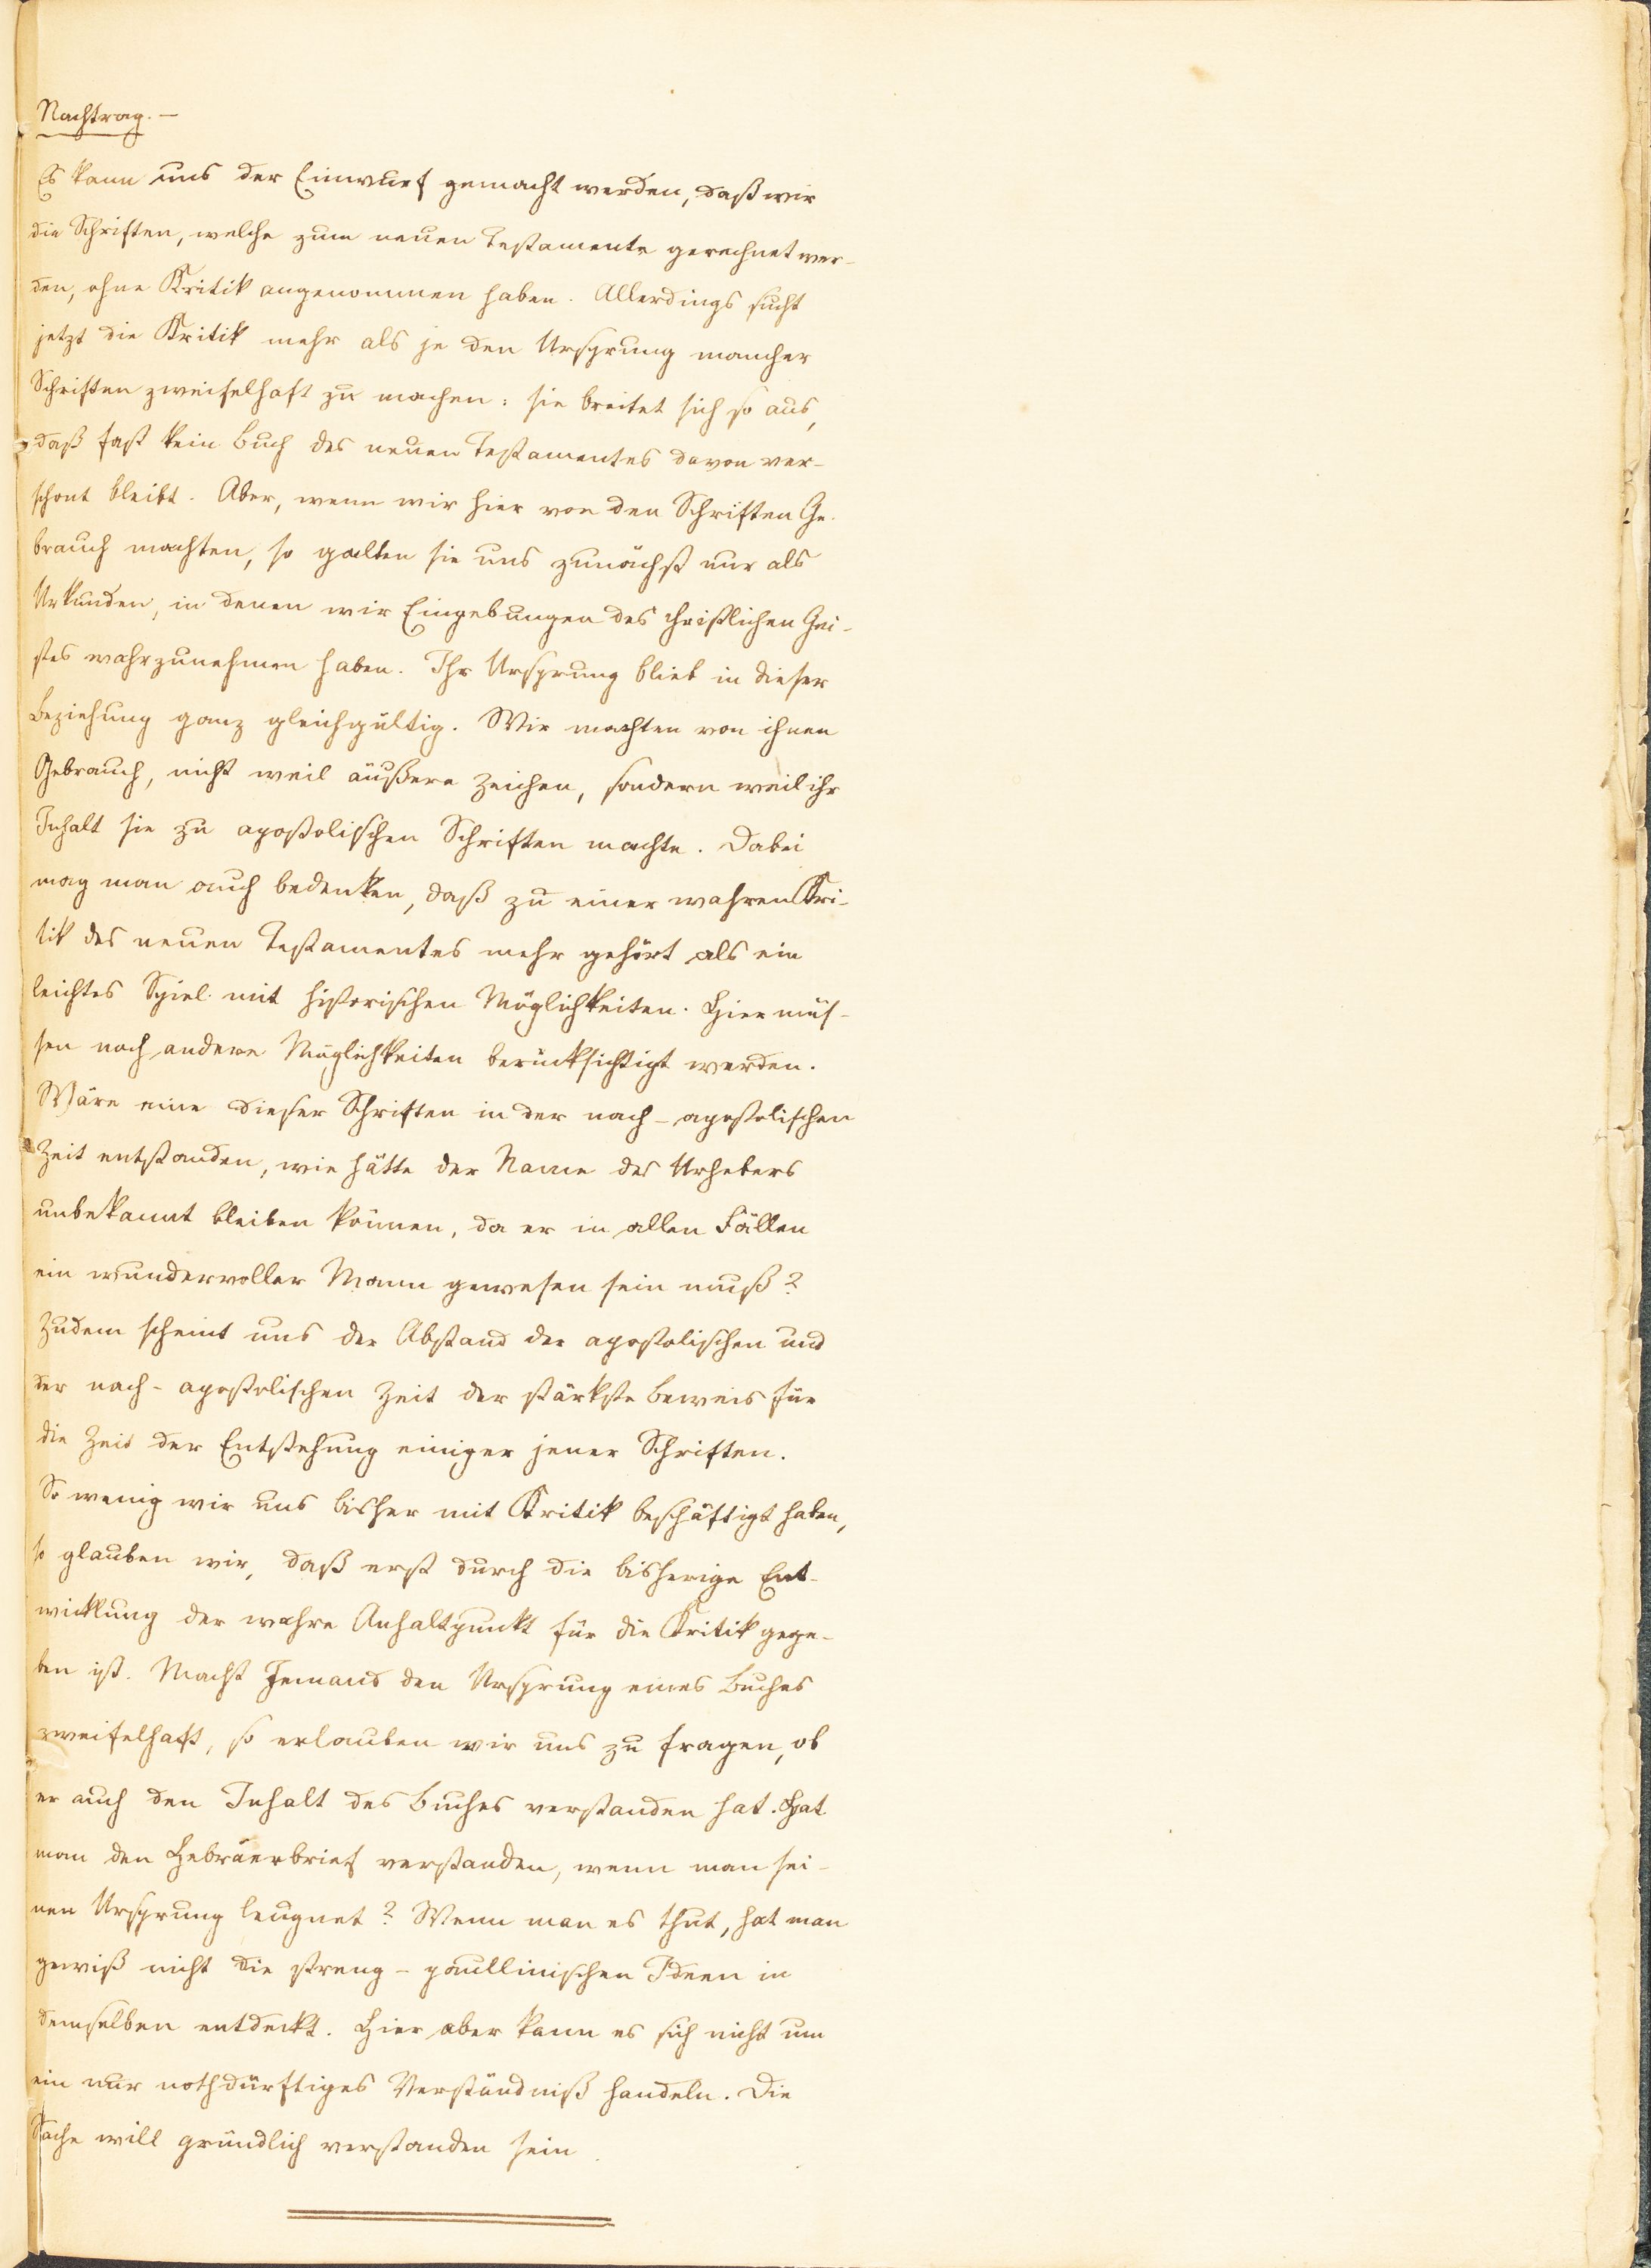 Nachtrag. —
Es kann uns der Einwurf gemacht werden, daß wir
die Schriften, welche zum neuen Testamente gerechnet wer-
den, ohne Kritik angenommen haben. Allerdings sucht
jetzt die Kritik mehr als je den Ursprung mancher
Schriften zweifelhaft zu machen: sie breitet sich so aus,
daß fast kein Buch des neuen Testamentes davon ver-
schont bleibt. Aber, wenn wir hier von den Schriften Ge-
brauch machten, so galten sie uns zunächst nur als
Urkunden, in denen wir Eingebungen des christlichen Gei-
stes wahrzunehmen haben. Ihr Ursprung blieb in dieser
Beziehung ganz gleichgültig. Wir machten von ihnen
Gebrauch, nicht weil äußere Zeichen, sondern weil ihr
Inhalt sie zu apostolischen Schriften machte. Dabei
mag man auch bedenken, daß zu einer wahren Kri-
tik des neuen Testamentes mehr gehört als ein
leichtes Spiel mit historischen Möglichkeiten. Hier müs-
sen noch andere Möglichkeiten berücksichtigt werden.
Wäre eine dieser Schriften in der nach-apostolischen
Zeit entstanden, wie hätte der Name des Urhebers
unbekannt bleiben können, da er in allen Fällen
ein wundervoller Mann gewesen sein muß?
Zudem scheint uns der Abstand der apostolischen und
der nach-apostolischen Zeit der stärkste Beweis für
die Zeit der Entstehung einiger jener Schriften.
So wenig wir uns bisher mit Kritik beschäftigt haben,
so glauben wir, daß erst durch die bisherige Ent-
wicklung der wahre Anhaltpunkt für die Kritik gege-
ben ist. Macht Jemand den Ursprung eines Buches
zweifelhaft, so erlauben wir uns zu fragen, ob
er auch den Inhalt des Buches verstanden hat. Hat
man den Hebräerbrief verstanden, wenn man sei-
nen Ursprung leugnet? Wenn man es thut, hat man
gewiß nicht die streng-paullinischen Ideen in
demselben entdeckt. Hier aber kann es sich nicht um
ein nur nothdürftiges Verständniß handeln. Die
Sache will gründlich verstanden sein.